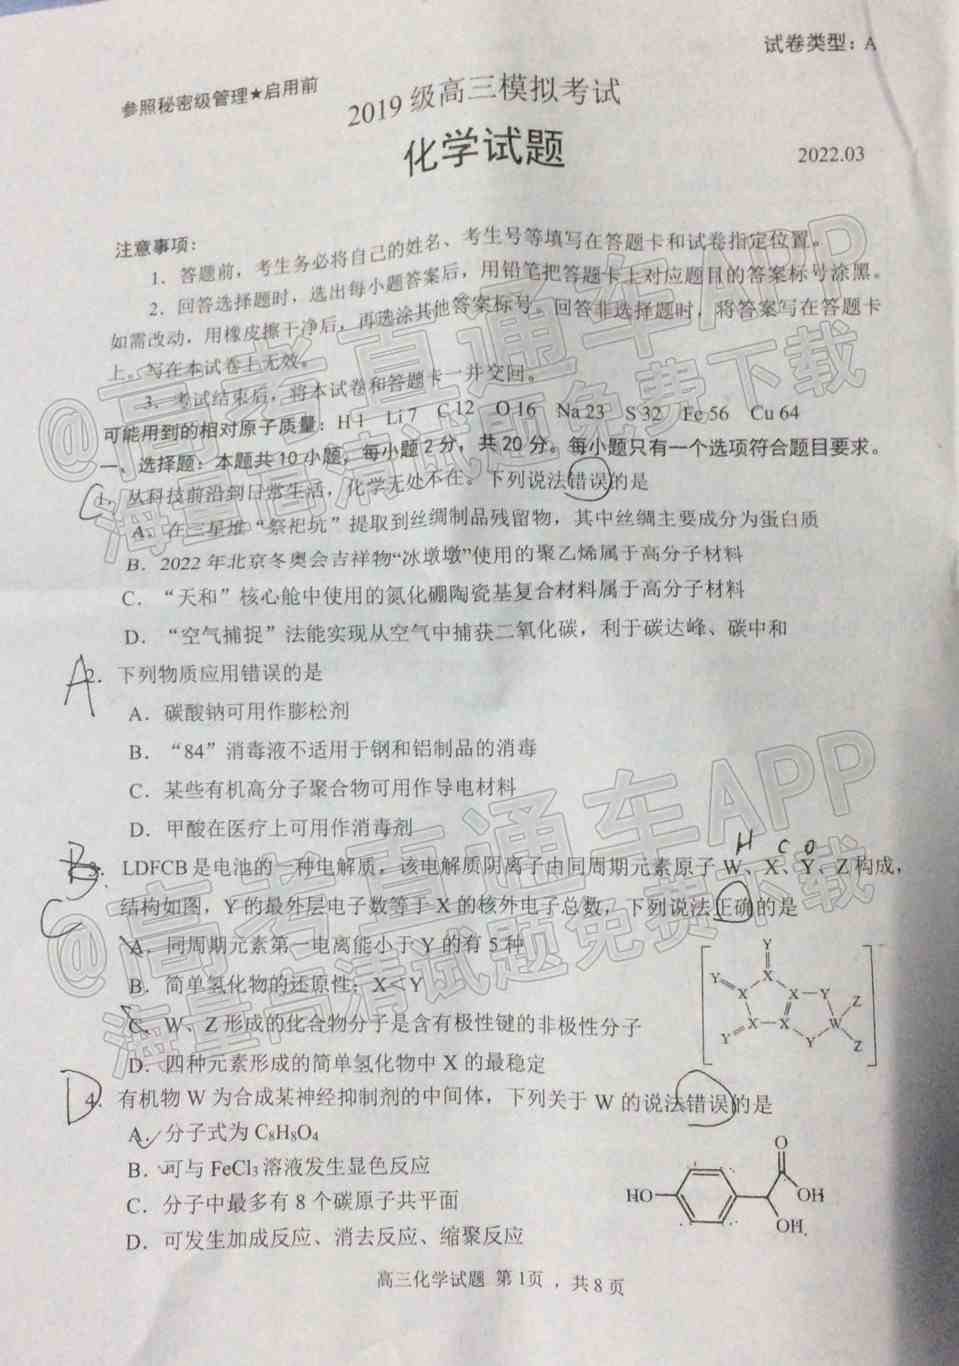 试卷类型：A
参照秘密级管理★启用前
2019级高三模拟考试
化学试题
2022.03
注意事项：
1．答题前，考生务必将自己的姓名、考生号等填写在答题卡和试卷指定位置。
2．回答选择题时，选出每小题答案后，用铅笔把答题卡上对应题目的答案标号涂黑。
如需改动，用橡皮擦干净后，再选涂其他答案标号。回答非选择题时，将答案写在答题卡
上．写在本试卷上无效。
3．考试结束后，将本试卷和答题卡一并交回。
可能用到的相对原子质量：H 1 Li 7 C 12 O 16 Na 23 S 32 Fe 56 Cu 64
一、选择题：本题共10小题，每小题2分，共20分。每小题只有一个选项符合题目要求。
C 1．从科技前沿到日常生活，化学无处不在。下列说法错误的是
A．在三星堆“祭祀坑”提取到丝绸制品残留物，其中丝绸主要成分为蛋白质
B．2022年北京冬奥会吉祥物“冰墩墩”使用的聚乙烯属于高分子材料
C．“天和”核心舱中使用的氮化硼陶瓷基复合材料属于高分子材料
D．“空气捕捉”法能实现从空气中捕获二氧化碳，利于碳达峰、碳中和
A 2．下列物质应用错误的是
A．碳酸钠可用作膨松剂
B．“84”消毒液不适用于钢和铝制品的消毒
C．某些有机高分子聚合物可用作导电材料
D．甲酸在医疗上可用作消毒剂
H C O
B 3．LDFCB是电池的一种电解质，该电解质阴离子由同周期元素原子W、X、Y、Z构成，
C 结构如图，Y的最外层电子数等于X的核外电子总数，下列说法正确的是
A．同周期元素第一电离能小于Y的有5种
B．简单氢化物的还原性：X＜Y
C．W、Z形成的化合物分子是含有极性键的非极性分子
D．四种元素形成的简单氢化物中X的最稳定
Y
Y X
X X Y Z
Y X X W
Y Z
D 4．有机物W为合成某神经抑制剂的中间体，下列关于W的说法错误的是
A．分子式为C₈H₈O₄
B．可与FeCl₃溶液发生显色反应
C．分子中最多有8个碳原子共平面
D．可发生加成反应、消去反应、缩聚反应
O
HO OH
OH
高三化学试题 第1页，共8页
@高考直通车APP
海量高清试题免费下载
@高考直通车APP
海量高清试题免费下载